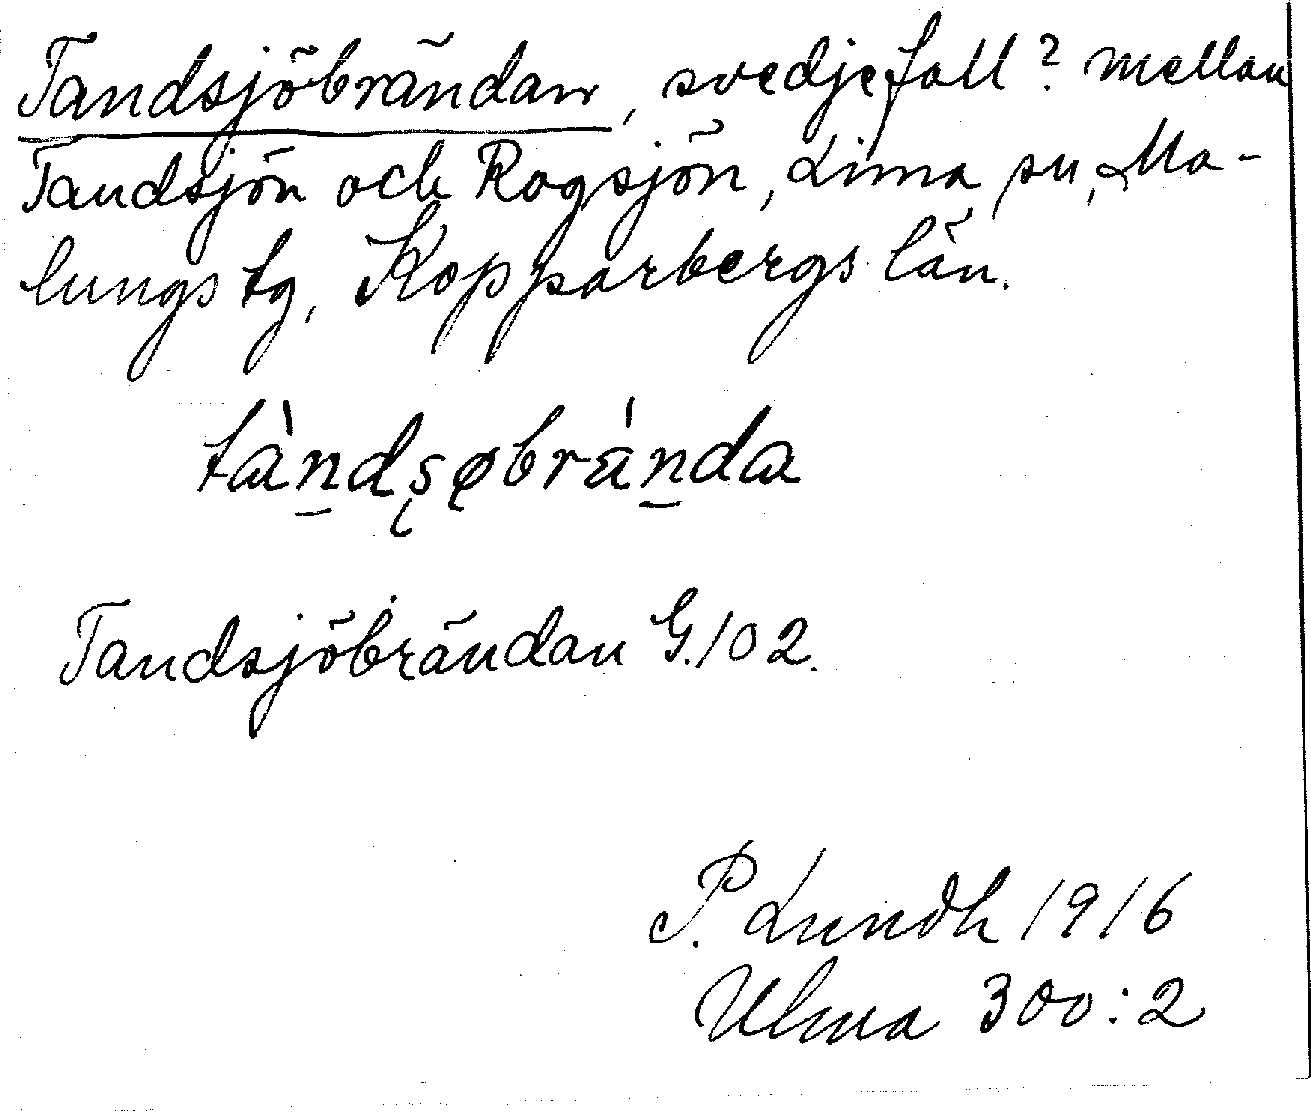 Tandsjöbrändan, svedjefall? mellan
Tandsjön och Rogsjön, Lima sn, Ma-
lungs tg, Kopparbergs län.
tàn̠dʂøbrán̠da
Tandsjöbrändan G.102.
P. Lundh 1916
Ulma 300:2